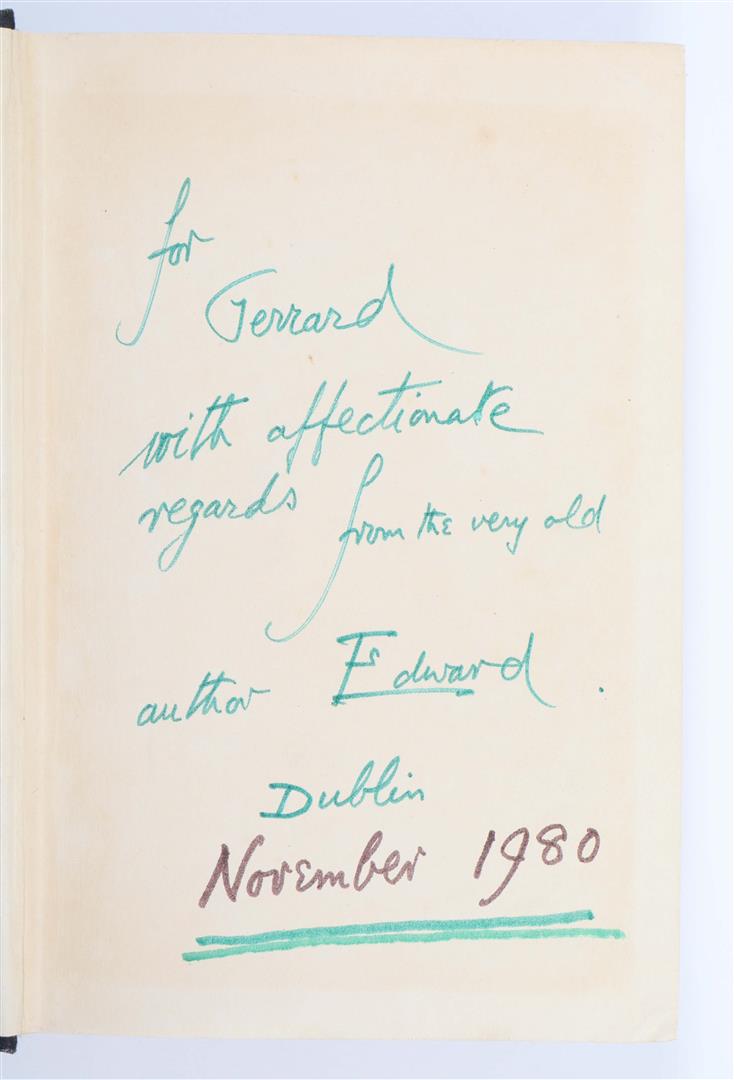 for
Gerrard
with affectionate
regards from the very old
author Edward.
Dublin
November 1980